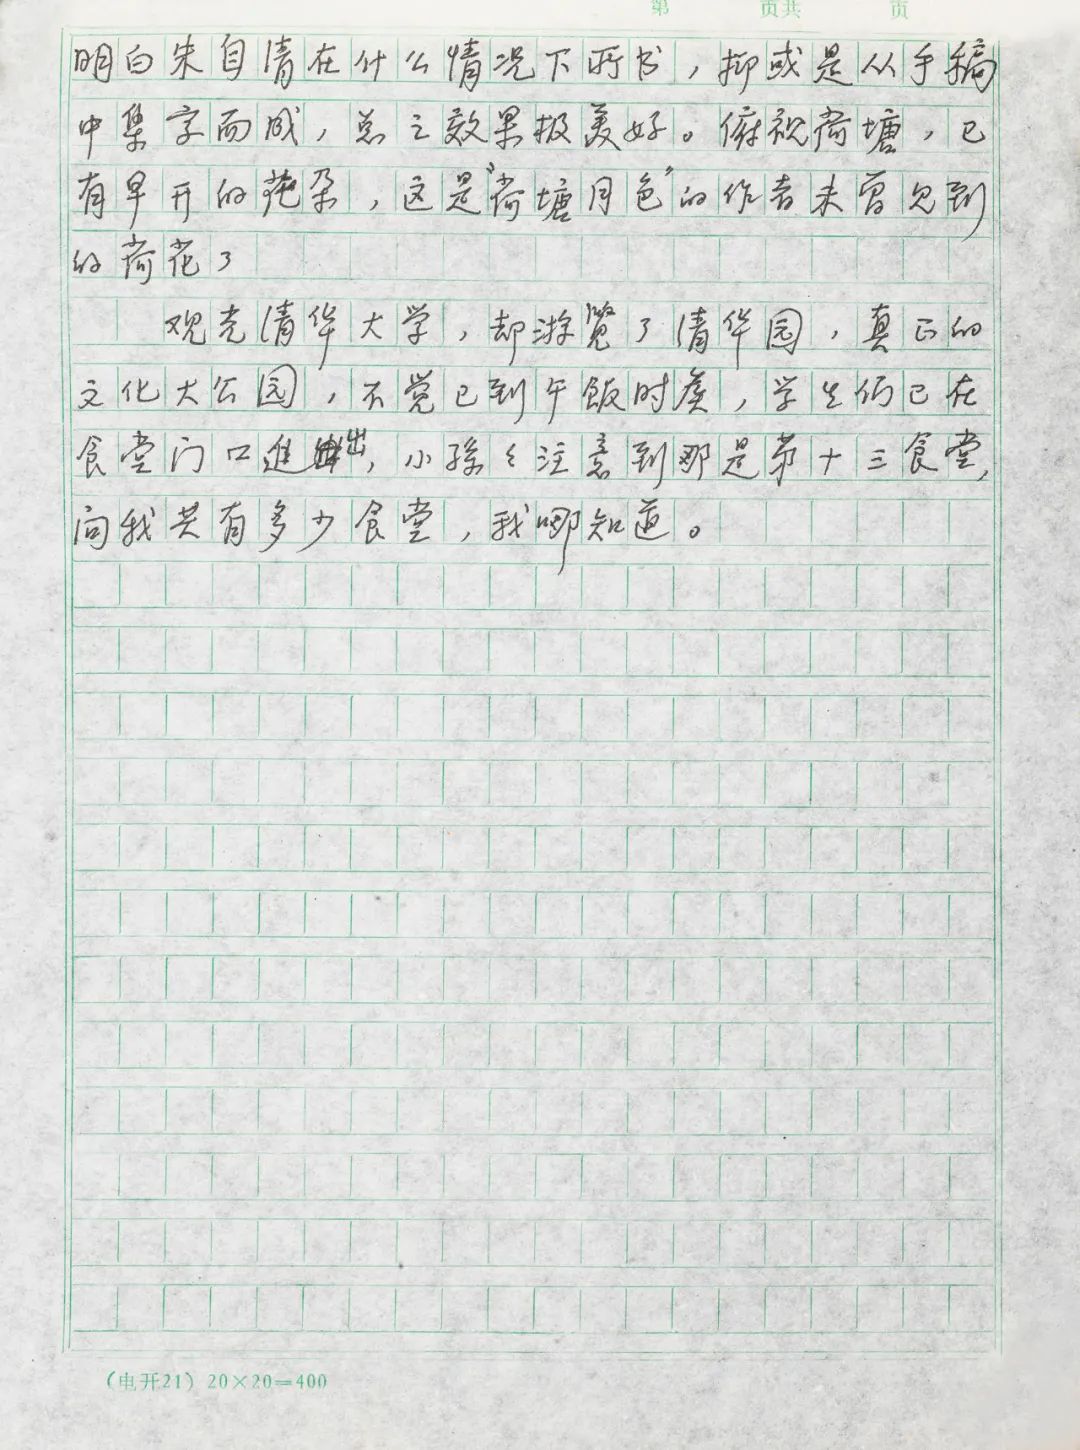 第 页共 页
明白朱自清在什么情况下所书，抑或是从手稿
中集字而成，总之效果极美好。俯视荷塘，已
有早开的花朵，这是“荷塘月色”的作者未曾见到
的荷花了
观光清华大学，却游览了清华园，真正的
文化大公园，不觉已到午饭时候，学生们已在
食堂门口进出，小孙々注意到那是第十三食堂，
问我共有多少食堂，我哪知道。
（电开21）20×20=400